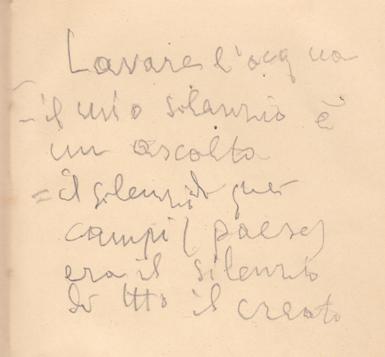 Lavare l'acqua
- il mio silenzio è
un ascolto
= Il silenzio di quei
campi (paese)
era il silenzio
di tutto il creato